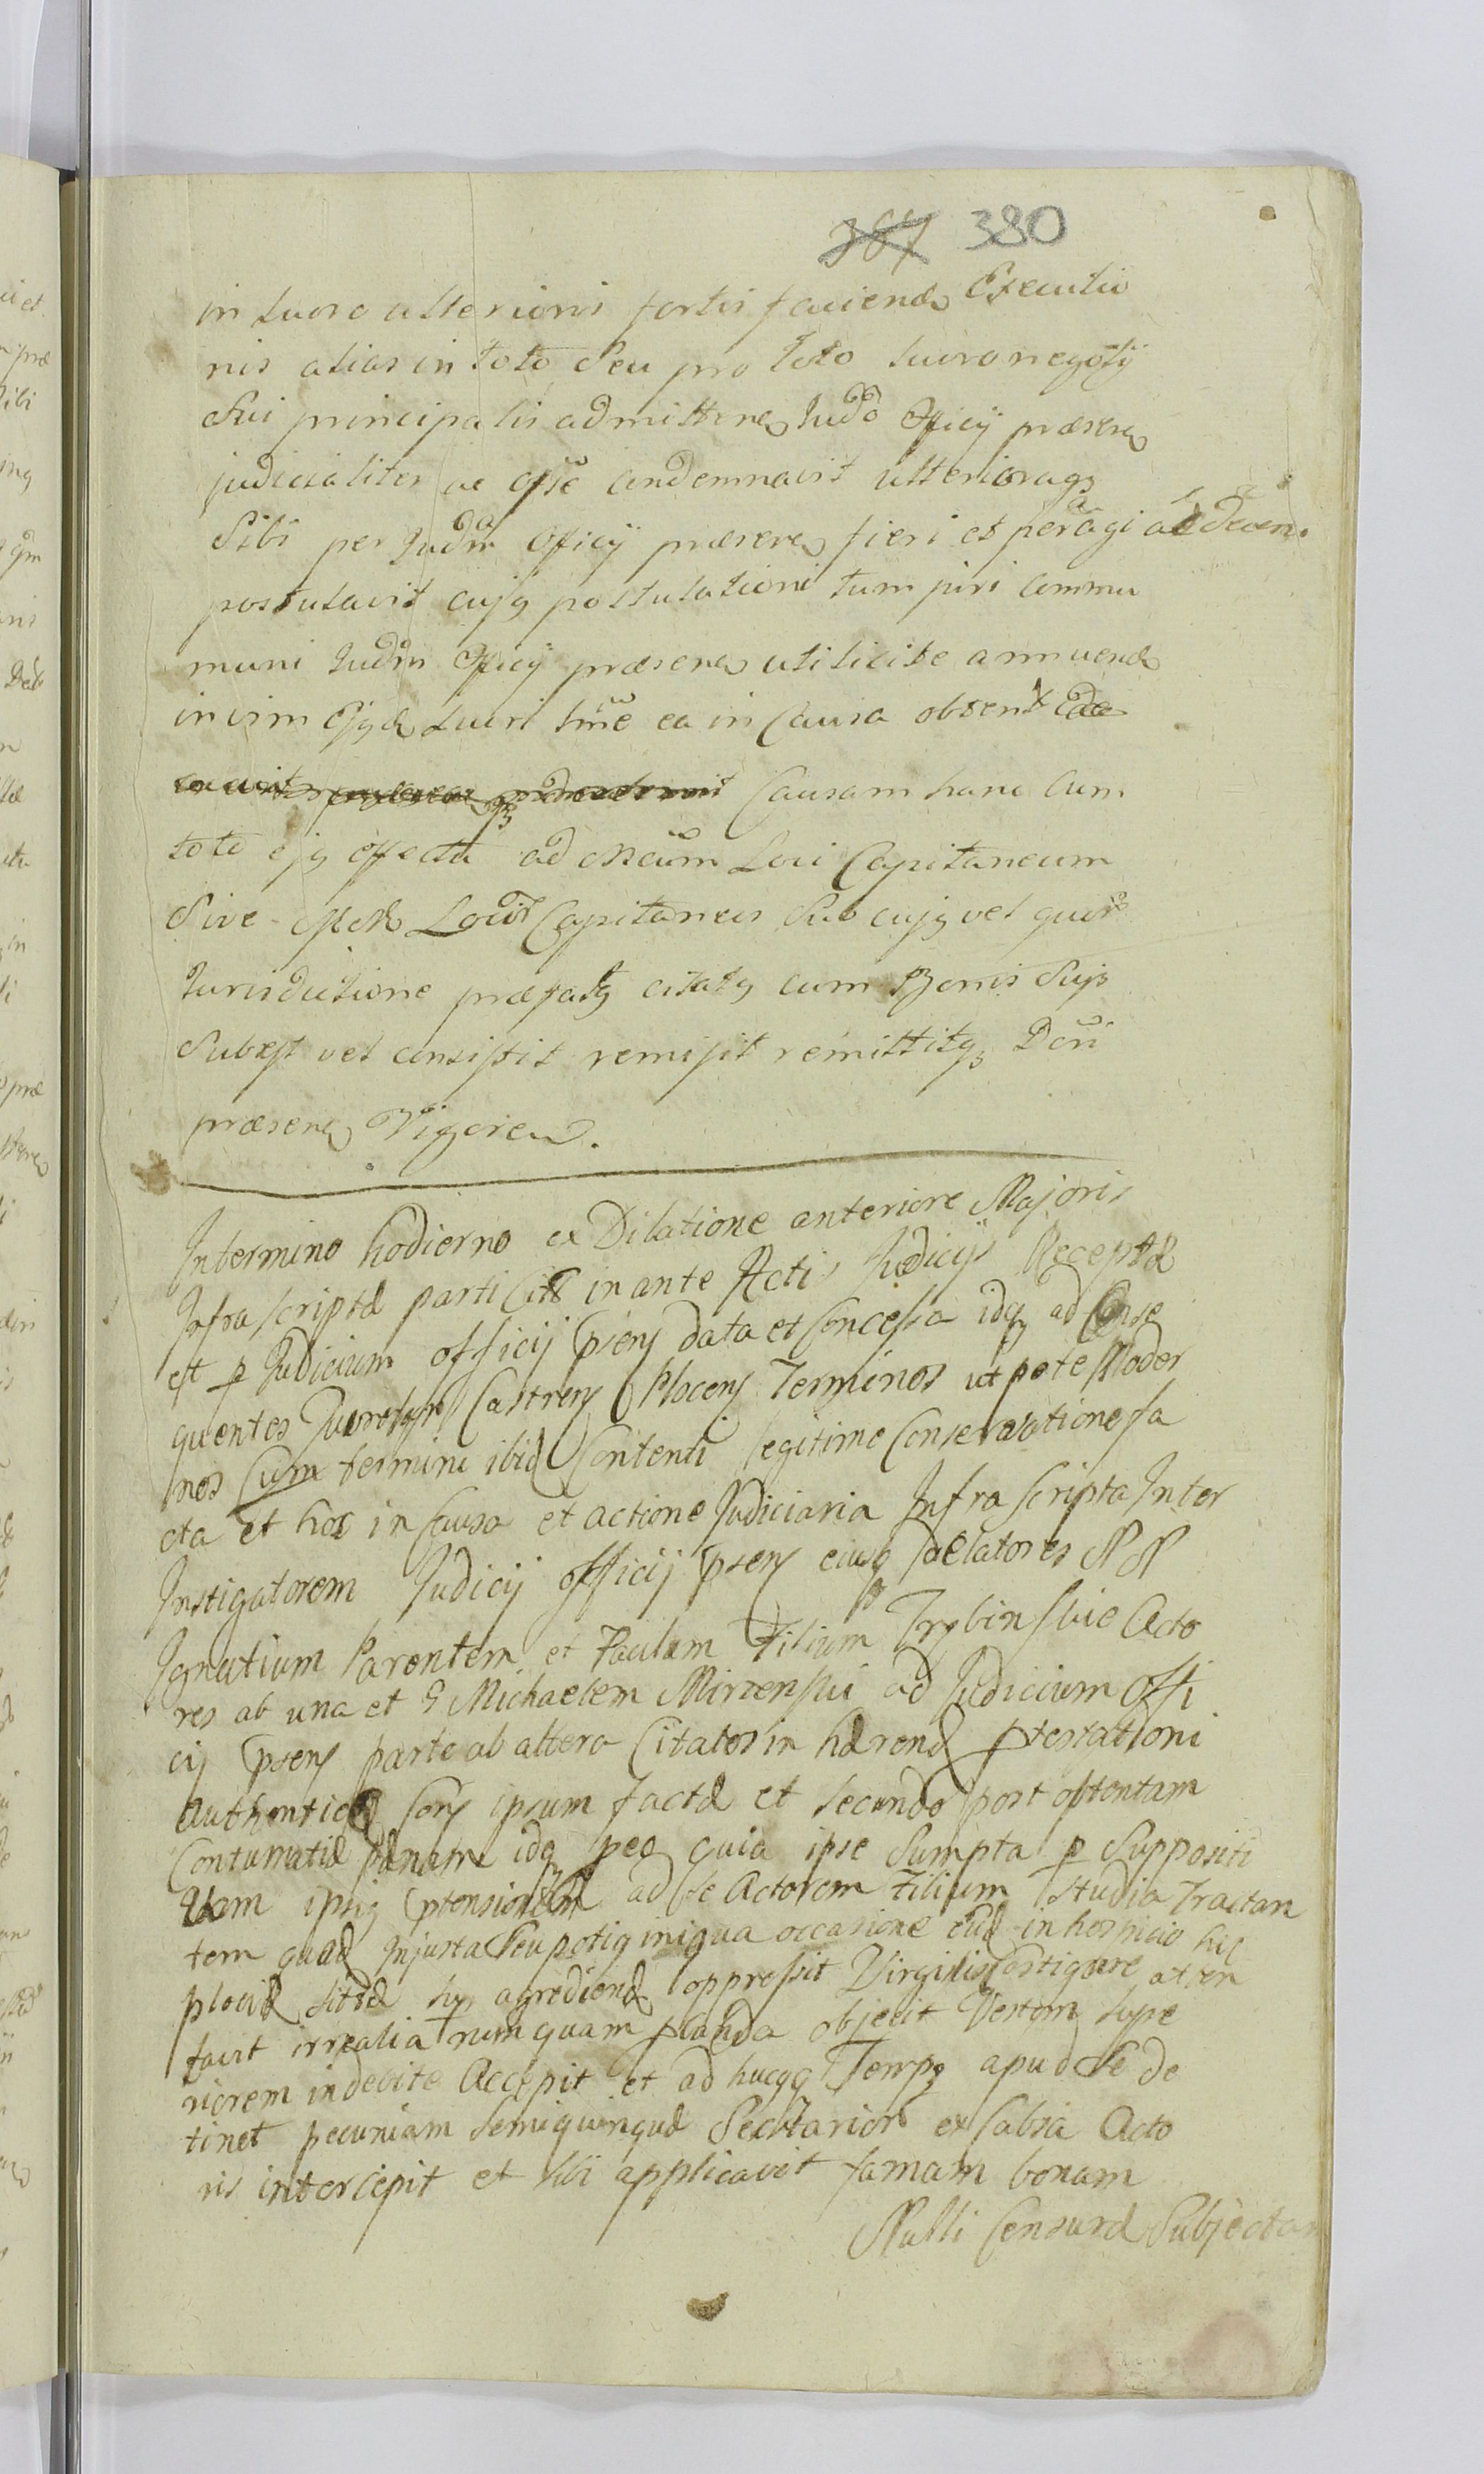 387 380
in lucro ulterioris fortis faciend Executio
nis alias in toto seu pro toto lucro negotÿ
Sui principalis admittere Judō Officÿ præsen
judicialiter ac offse condemnavit ulterioraq3
Sibi per Judm Officÿ præsens fieri et peragi ad decern.
postulavit cujq postulationi tum juri commu
muni Judm Officÿ præsens uti licite annuend
in vim Ejqd Lucri hme ea in Causa obtent
Causam hanc cum
toto ejq effectu ad Loci Capitaneum
Sive Capitaneus Sub cujq vel quor
Jurisdictione præfatq citatq cum Bonis Suis
Subest vel consistit remisit remittitq3 Dcri
præsens Vigore.
In termino hodierno ex Dilatione anteriore Majoris
Infra scriptæ parti Citt in ante Actis Judicÿs Receptæ
est p Judicium officij psens data et Concessa idq ad Conse
quentes Castrens Plocens Terminos utpote Moder
nos Cum termini ibid Contenti legitime Conservatione fa
cta et hoc in Causa et actione Judiciaria Infra scripta Inter
Instigatorem Judicij officij psens eiusq delatores NN
Ignatium Parentem et Paulum Filium Trybinskie Acto
res ab una et G Michaelem Mirzenski ad Judicium Offi
cij psens parte ab altera Citatos in hærend ptestationi
authenticæ Cons ipsum factæ et secundo post obtentam
Contumatiæ pænam idq peo quia ipse Sumpta p Suppositi
tiam ipsiq ptensionem ad se Actorem Filium studia Tractan
tem quad Injusta Seu potiq iniqua occasione in hospicio hic
plociæ sitæ agrediend oppressit Virgis Castigare atten
tavit irrealia numquam planda objecit Vestem supe
riorem indebite Accepit et ad hucqq Tempq apud Se de
tinet pecuniam Semiquinquæ ex Sabia Acto
ris intercepit et sibi applicavit famam bonam
Nulli Censuræ Subjectam